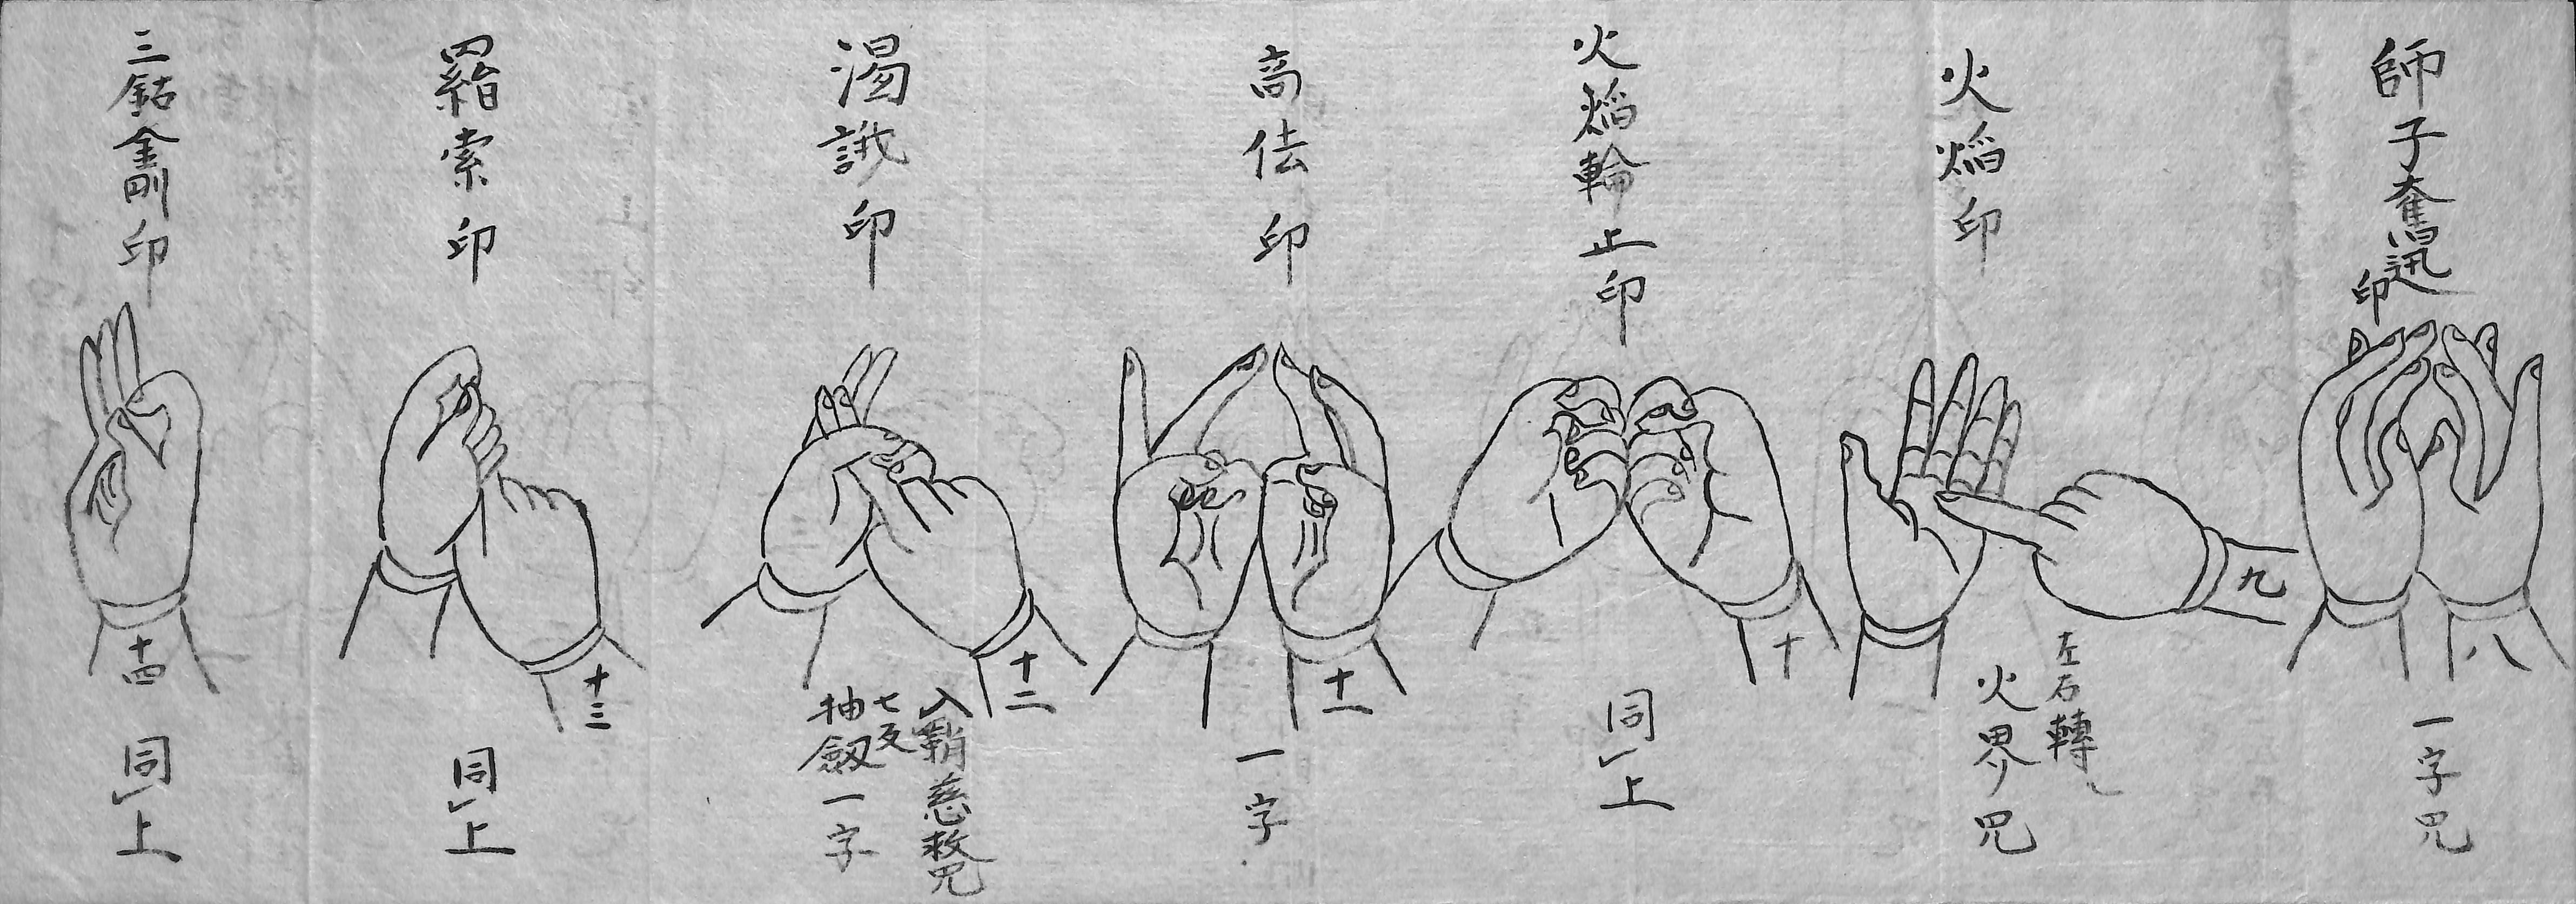 師子奮迅印
八
一字咒
火焰印
九
左右轉
火界咒
火焰輪止印
十
同上
高佉印
十一
一字
渴誐印
十二
入鞘慈救咒
七反
抽劔一字
羂索印
十三
同上
三鈷金剛印
十四
同上